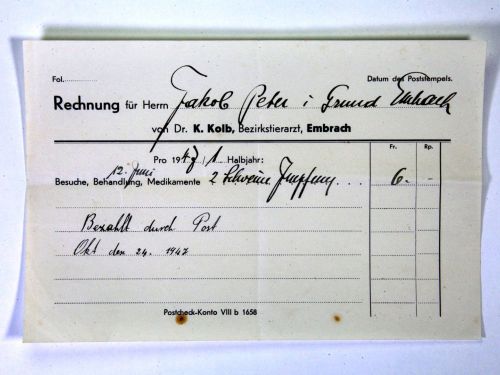 Fol.......... Datum des Poststempels.
Rechnung für Herrn Jakob Peter i Grund Embrach
von Dr. K. Kolb, Bezirkstierarzt, Embrach
Fr. Rp.
Pro 1947 / 1 Halbjahr:
12. Juni
Besuche, Behandlung, Medikamente 2 Schweine Impfung . . . 6.-
Bezahlt durch Post
Okt den 24. 1947
Postcheck-Konto VIII b 1658